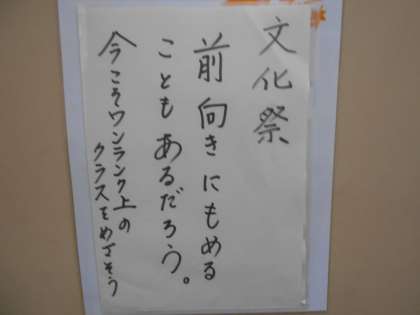 文化祭
前向きにもめる
こともあるだろう。
今こそワンランク上の
クラスをめざそう